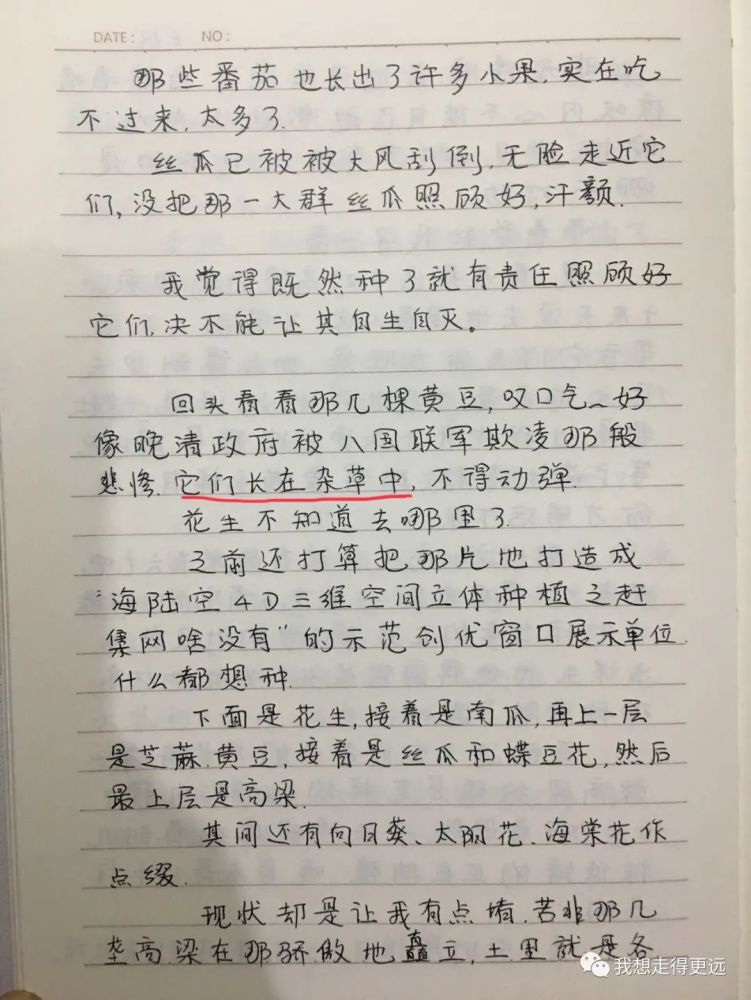 DATE: NO:
那些番茄也长出了许多小果,实在吃
不过来,太多了.
丝瓜已被被大风刮倒.无脸走近它
们,没把那一大群丝瓜照顾好,汗颜.
我觉得既然种了就有责任照顾好
它们,决不能让其自生自灭。
回头看看那几棵黄豆,叹口气~好
像晚清政府被八国联军欺凌那般
悲惨.它们长在杂草中,不得动弹.
花生不知道去哪里了.
之前还打算把那片地打造成
“海陆空4D三维空间立体种植之赶
集网啥没有”的示范创优窗口展示单位.
什么都想种.
下面是花生,接着是南瓜,再上一层
是芝蔴.黄豆,接着是丝瓜和蝶豆花,然后
最上层是高梁.
其间还有向日葵、太阳花.海棠花作
点缀.
现状却是让我有点堵.苦非那几
垄高梁在那骄傲地矗立,土里就是各
我想走得更远